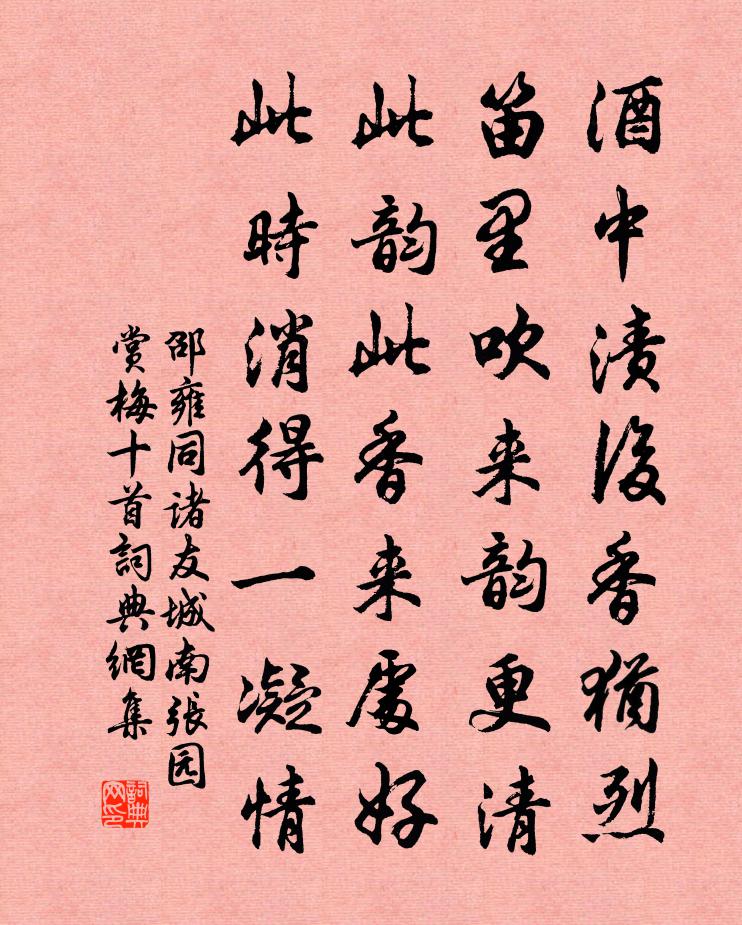 酒中渍後香猶烈
笛里吹来韵更清
此韵此香来處好
此時消得一凝情
邵雍同诸友城南張园
赏梅十首詞典網集
詞典网印